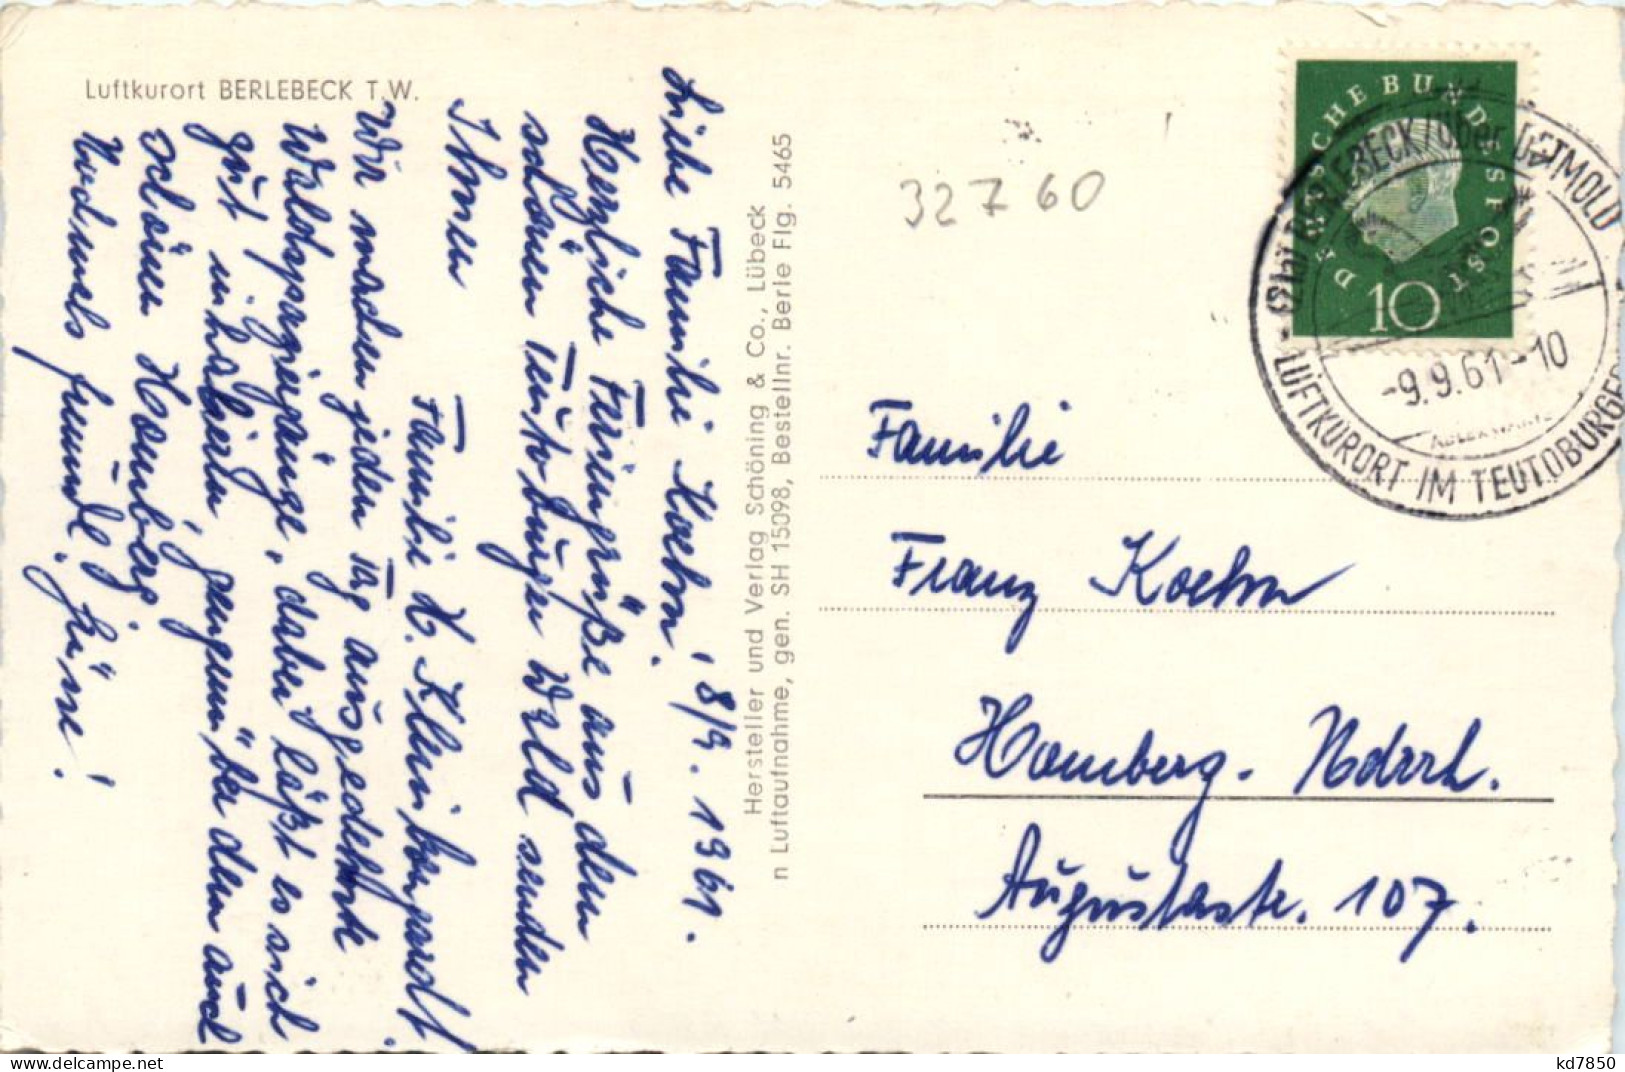 Luftkurort BERLEBECK T.W.
8/9. 1961.
Liebe Familie Koehn!
Herzliche Feriengrüße aus dem
schönen Teutoburger Wald senden
Ihnen
Familie H. Kleinbongardt
Wir machen jeden Tag ausgedehnte
Waldspaziergänge, dabei läßt es sich
gut
gegenüber dem auch
schönen Homberg
Nochmals freundl. Grüße!
Hersteller und Verlag Schöning & Co., Lübeck
n Luftaufnahme, gen. SH 15098, Bestellnr. Berle Flg. 5465
32760
DEUTSCHE BUNDESPOST
10
BERLEBECK über DETMOLD
-9.9.61-10
ADLERWARTE
LUFTKURORT IM TEUTOBURGER
Familie
Franz Koehn
Homberg-Ndrrh.
Augustastr. 107.
kd7850